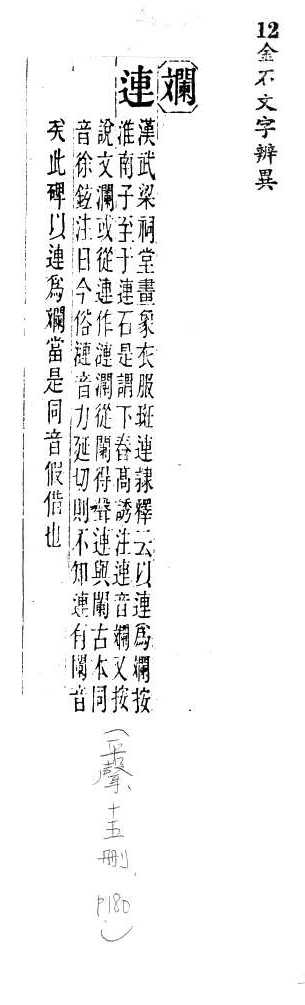 12金不文字辨異
斕
連
漢武梁祠堂畫象衣服斑連隸釋云以連爲斕按
淮南子至于連石是謂下舂高誘注連音斕又按
說文瀾或從連作漣瀾從闌得聲連與闌古本同
音徐鉉注曰今俗漣音力延切則不知連有闌音
矣此碑以連爲斕當是同音假借也
(平聲、十五刪、P180)